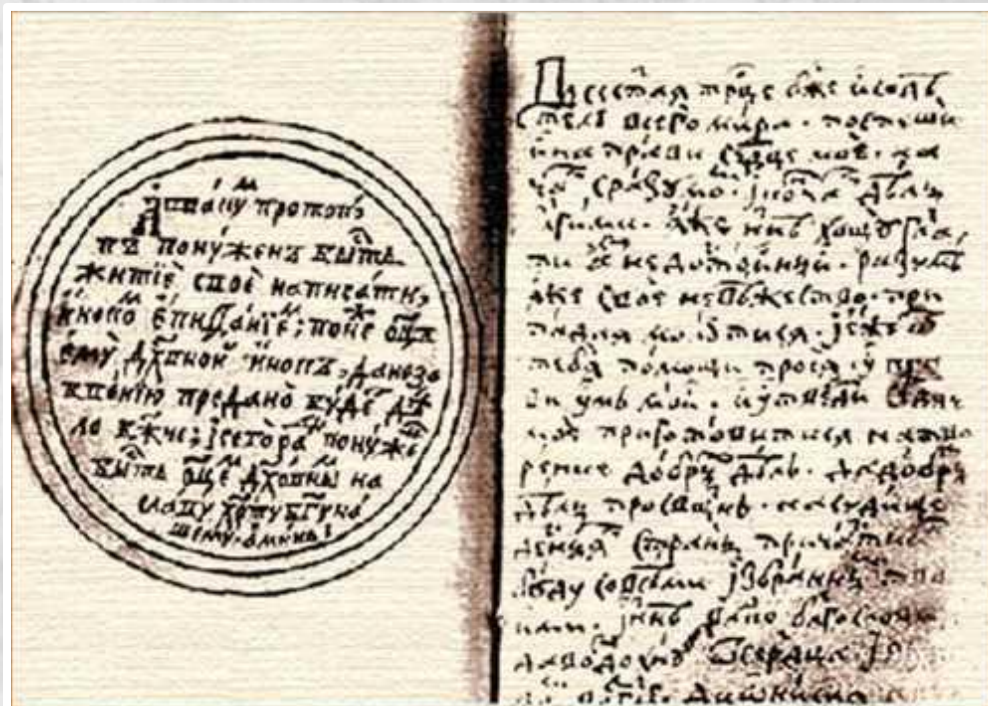 Авваку протопо
пъ понуженъ бысть
житиѐ своѐ написати,
иноко епифаниѐ; понѐ оц҃ъ
ему дх҃овной инокъ, да не за
бвению предано буде дѣ
ло бж҃ие; и сего ра понуже
бысть оц҃е дх҃овны на
славу хр҃ту бг҃у на
шему. аминь.
Всест҃ая трц҃е бж҃е и содѣ
телю всего мира. поспеши
и направи срдц҃е моѐ. на
ча с разумо. и конча дѣлы
яже нн҃ѣ хощу гл҃а
ти а недостойныи. разумѣ
я же своѐ невѣжество. при
падая молю ти ся. и еже ѿ
тебя помощи прося. упра
ви умъ мой. и утверди срдц҃е
моѐ приготовитися на тво
рение добры дѣлъ. да добры
дѣлы просвѣщенъ. на судище
десныя страны причастни
буду со всѣми избранны тво
ими. и нн҃ѣ влд҃ко благослови
да воздохну ѿ сердца. и я
дионисия